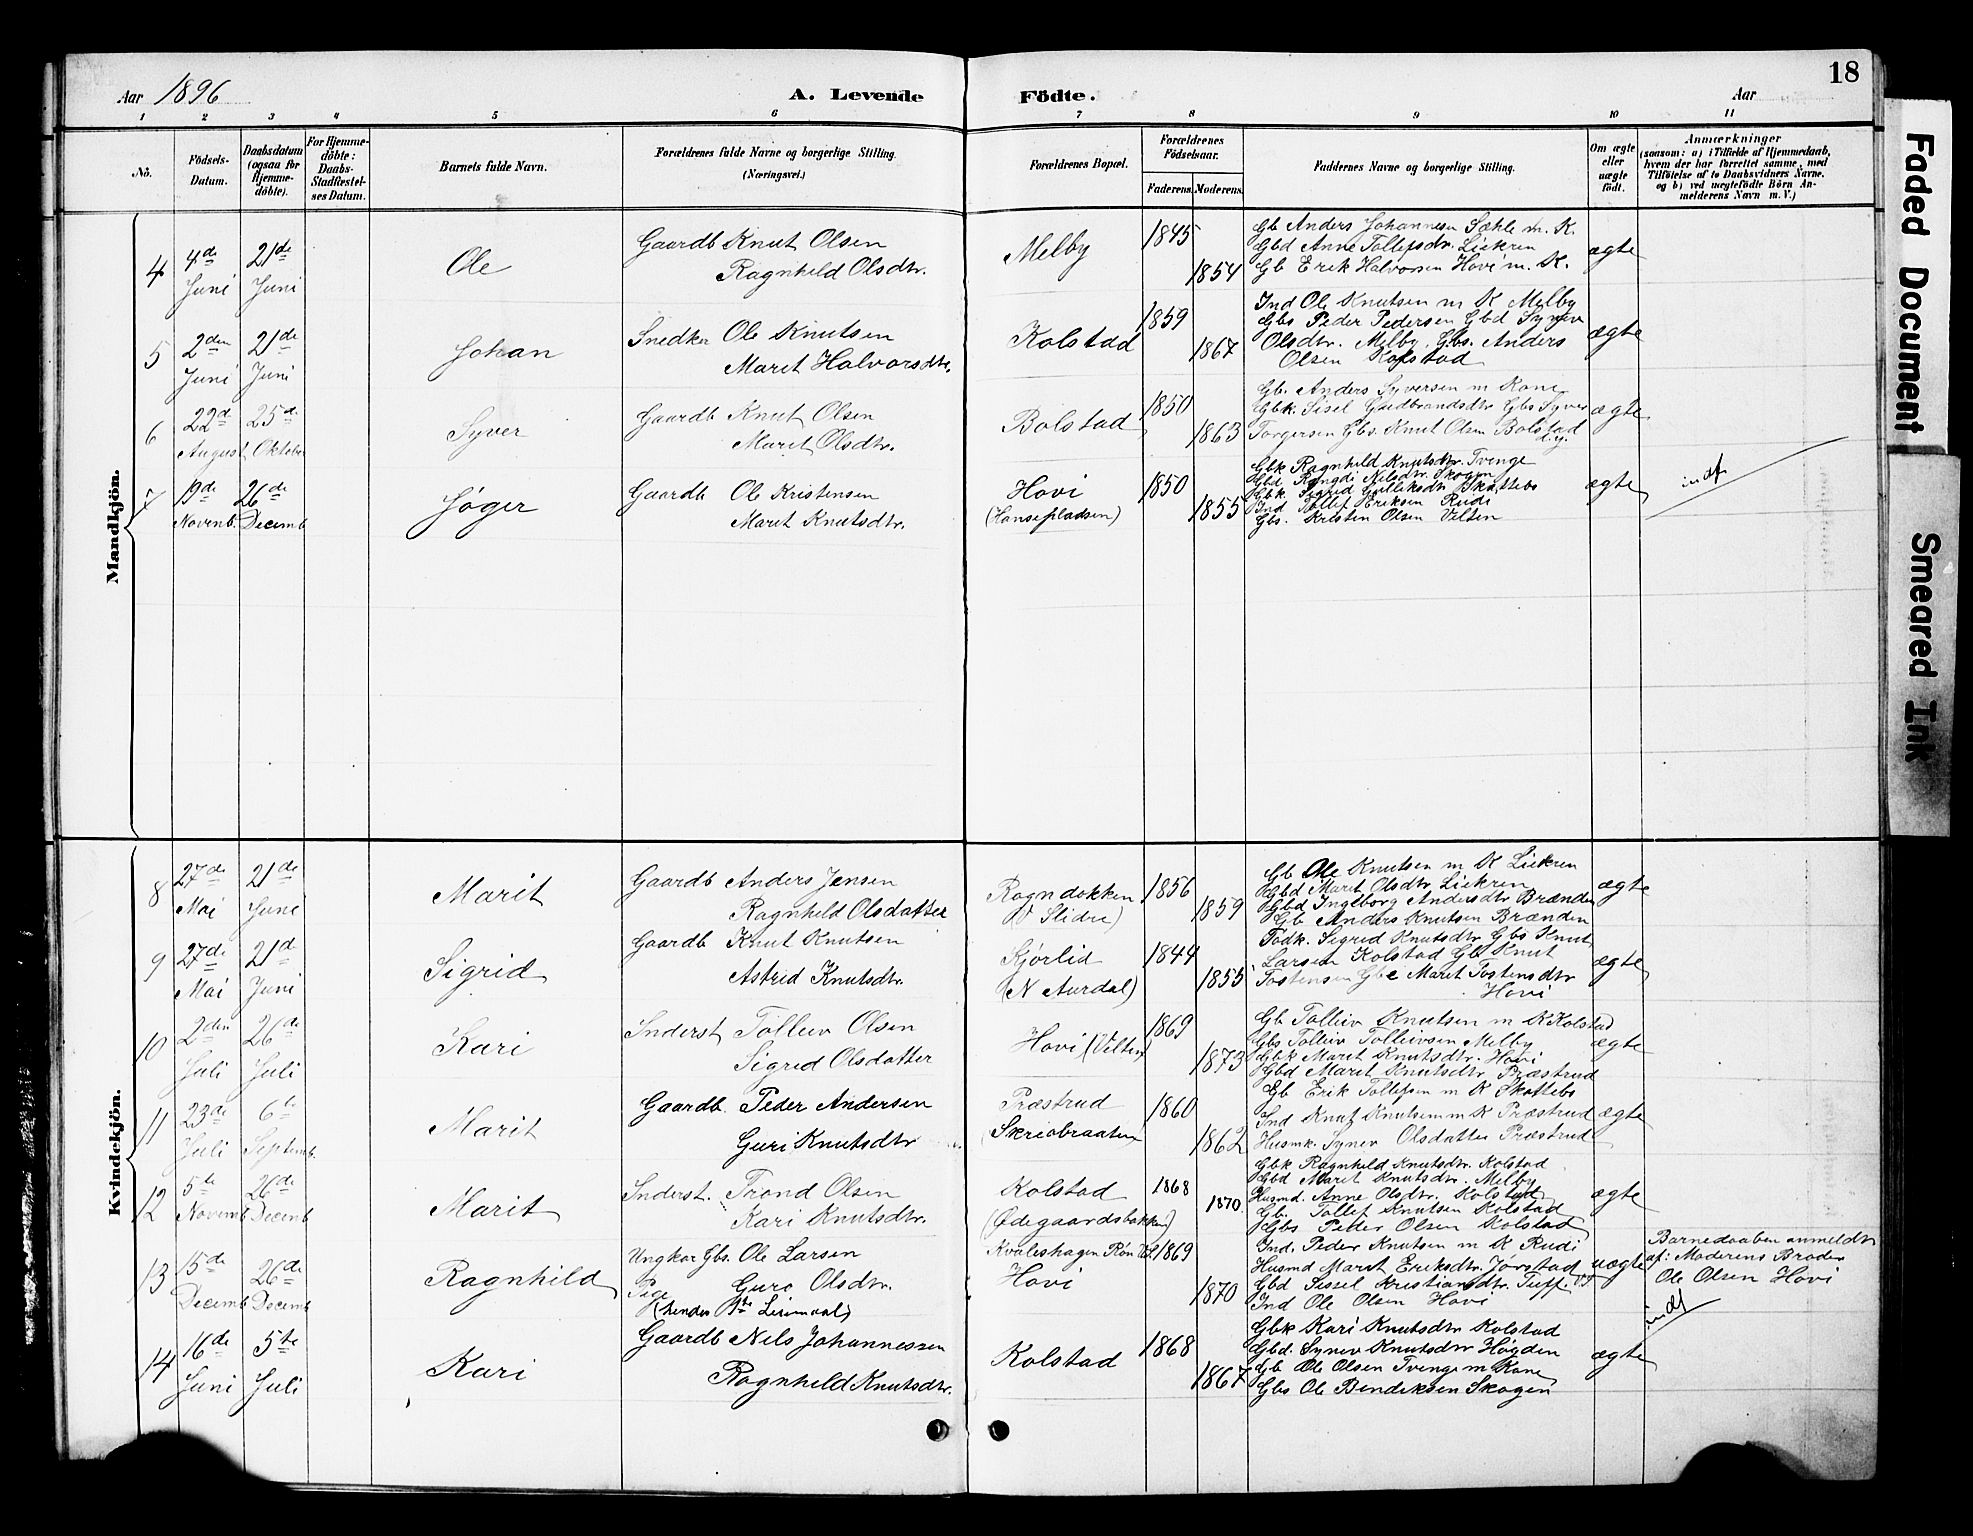 18
Aar 1896
A. Levende Födte.
Aar
1 2 3 4 5 6 7 8 9 10 11
No.
Födsels-Datum.
Daabsdatum (ogsaa for Hjemme-döbte).
For Hjemme-döbte: Daabs-Stadfæstel-ses Datum.
Barnets fulde Navn.
Forældrenes fulde Navne og borgerlige Stilling.
(Næringsvei.)
Forældrenes Bopæl.
Forældrenes Födselsaar.
Faderens. Moderens.
Faddernes Navne og borgerlige Stilling.
Om ægte eller uægte födt.
Anmærkninger
(saasom: a) i Tilfælde af Hjemmedaab,
hvem der har forrettet samme, med
Tilföielse af to Daabsvidners Navne,
og b) ved uegtefödte Börn An-
melderens Navn m. V.)
Mandkjön.
4 4de Juni 21de Juni Ole
Gaardb Knut Olsen
Ragnhild Olsdtr.
Melby 1845 1854
Gb Anders Johannesen Sæhle m. K.
Gbd Anne Tollefsdr. Liekren
Gb Erik Halvorsen Hovi m. K.
ægte
5 2den Juni 21de Juni Johan
Snedker Ole Knutsen
Marit Halvorsdtr.
Kolstad 1859 1867
Ind Ole Knutsen m K Melby
Gbs Peder Pedersen Gbd Synev
Olsdtr. Melby. Gbs. Anders
Olsen Kolstad
ægte
6 22de August 25de Oktober Syver
Gaardb Knut Olsen
Marit Olsdtr.
Bolstad 1850 1863
Gb. Anders Syversen m Kone
Gbk. Sisel Gudbrandsdtr Gbs Syver
Torgersen Gbs. Knut Olsen Bolstad
d.y.
ægte
7 19de Novemb. 26de Decemb Jøger
Gaardb Ole Kristensen
Marit Knutsdtr.
Hovi
(Hansepladsen)
1850 1855
Gbk Ragnhild Knutsdtr. Tvenge
Gbd Rangdi Nilsdtr. Skogen
Gbk Sigrid Gulliksdtr Skattebo
Ind Tollef Eriksen Rudi
Gbs. Kristen Olsen Velten
ægte
indf
Kvindekjön.
8 27de Mai 21de Juni Marit
Gaardb Anders Jensen
Ragnhild Olsdatter
Ragndokken
(V Slidre)
1856 1859
Gb Ole Knutsen m K Liekren
Gbd Marit Olsdtr Liekren
Gbd Ingeborg Andersdtr Brænden
Gb Anders Knutsen Brænden
ægte
9 27de Mai 21de Juni Sigrid
Gaardb Knut Knutsen
Astrid Knutsdtr.
Kjörlid
(N Aurdal)
1844 1855
Födk. Sigrid Knutsdtr Gbs Knut
Larsen Kolstad Gb Knut
Tostensen Gbe Marit Tostensdtr
Hovi
ægte
10 2den Juli 26de Juli Kari
Inderst Tolleiv Olsen
Sigrid Olsdatter
Hovi (Velten)
1869 1873
Gb Tolleiv Knutsen m K Kolstad
Gbs Tolleiv Tolleivsen Melby
Gbk Marit Knutsdtr. Hovi
Gbd Marit Knutsdtr Præstrud
ægte
11 23de Juli 6te Septemb. Marit
Gaardb. Peder Andersen
Guri Knutsdtr
Præstrud
Skriobraaten
1860 1862
Gb Erik Tollefsen m K Skattebo
Ind Knut Knutsen m K Præstrud
Husmk. Synev Olsdatter Præstrud
ægte
12 5te Novemb 26de Decemb Marit
Inderst. Trond Olsen
Kari Knutsdtr.
Kolstad
(Ødegaardsbakken)
1868 1870
Gbk Ragnhild Knutsdtr. Kolstad
Gbd Marit Knutsdtr. Melby
Husmd. Anne Olsdtr. Kolstad
Gb. Tollef Knutsen Kolstad
Gbs Peder Olsen Kolstad
ægte
13 15de Decemb 26de Decemb Ragnhild
Ungkar Gbs. Ole Larsen
Pige Guro Olsdtr.
(hendes 1ste Leiermaal)
Kvaleshagen Røn V.S.
Hovi
1869 1870
Ind. Peder Knutsen m K Rudi
Husmd Marit Eriksdtr. Jørstad
Gbd Sissel Kristiansdtr. Tuff. V.S
Ind Ole Olsen Hovi
uægte
Barnedaaben anmeldt
af: Moderens Broder
Ole Olsen Hovi
indf
14 16de Juni 5te Juli Kari
Gaardb Nils Johannessen
Ragnhild Knutsdtr.
Kolstad 1868 1867
Gbk Kari Knutsdtr Kolstad
Gbd. Synev Knutsdtr Høgden
Gb Ole Olsen Tvenge m Kone
Gbs Ole Bendiksen Skogen
ægte
Faded Document
Smeared Ink